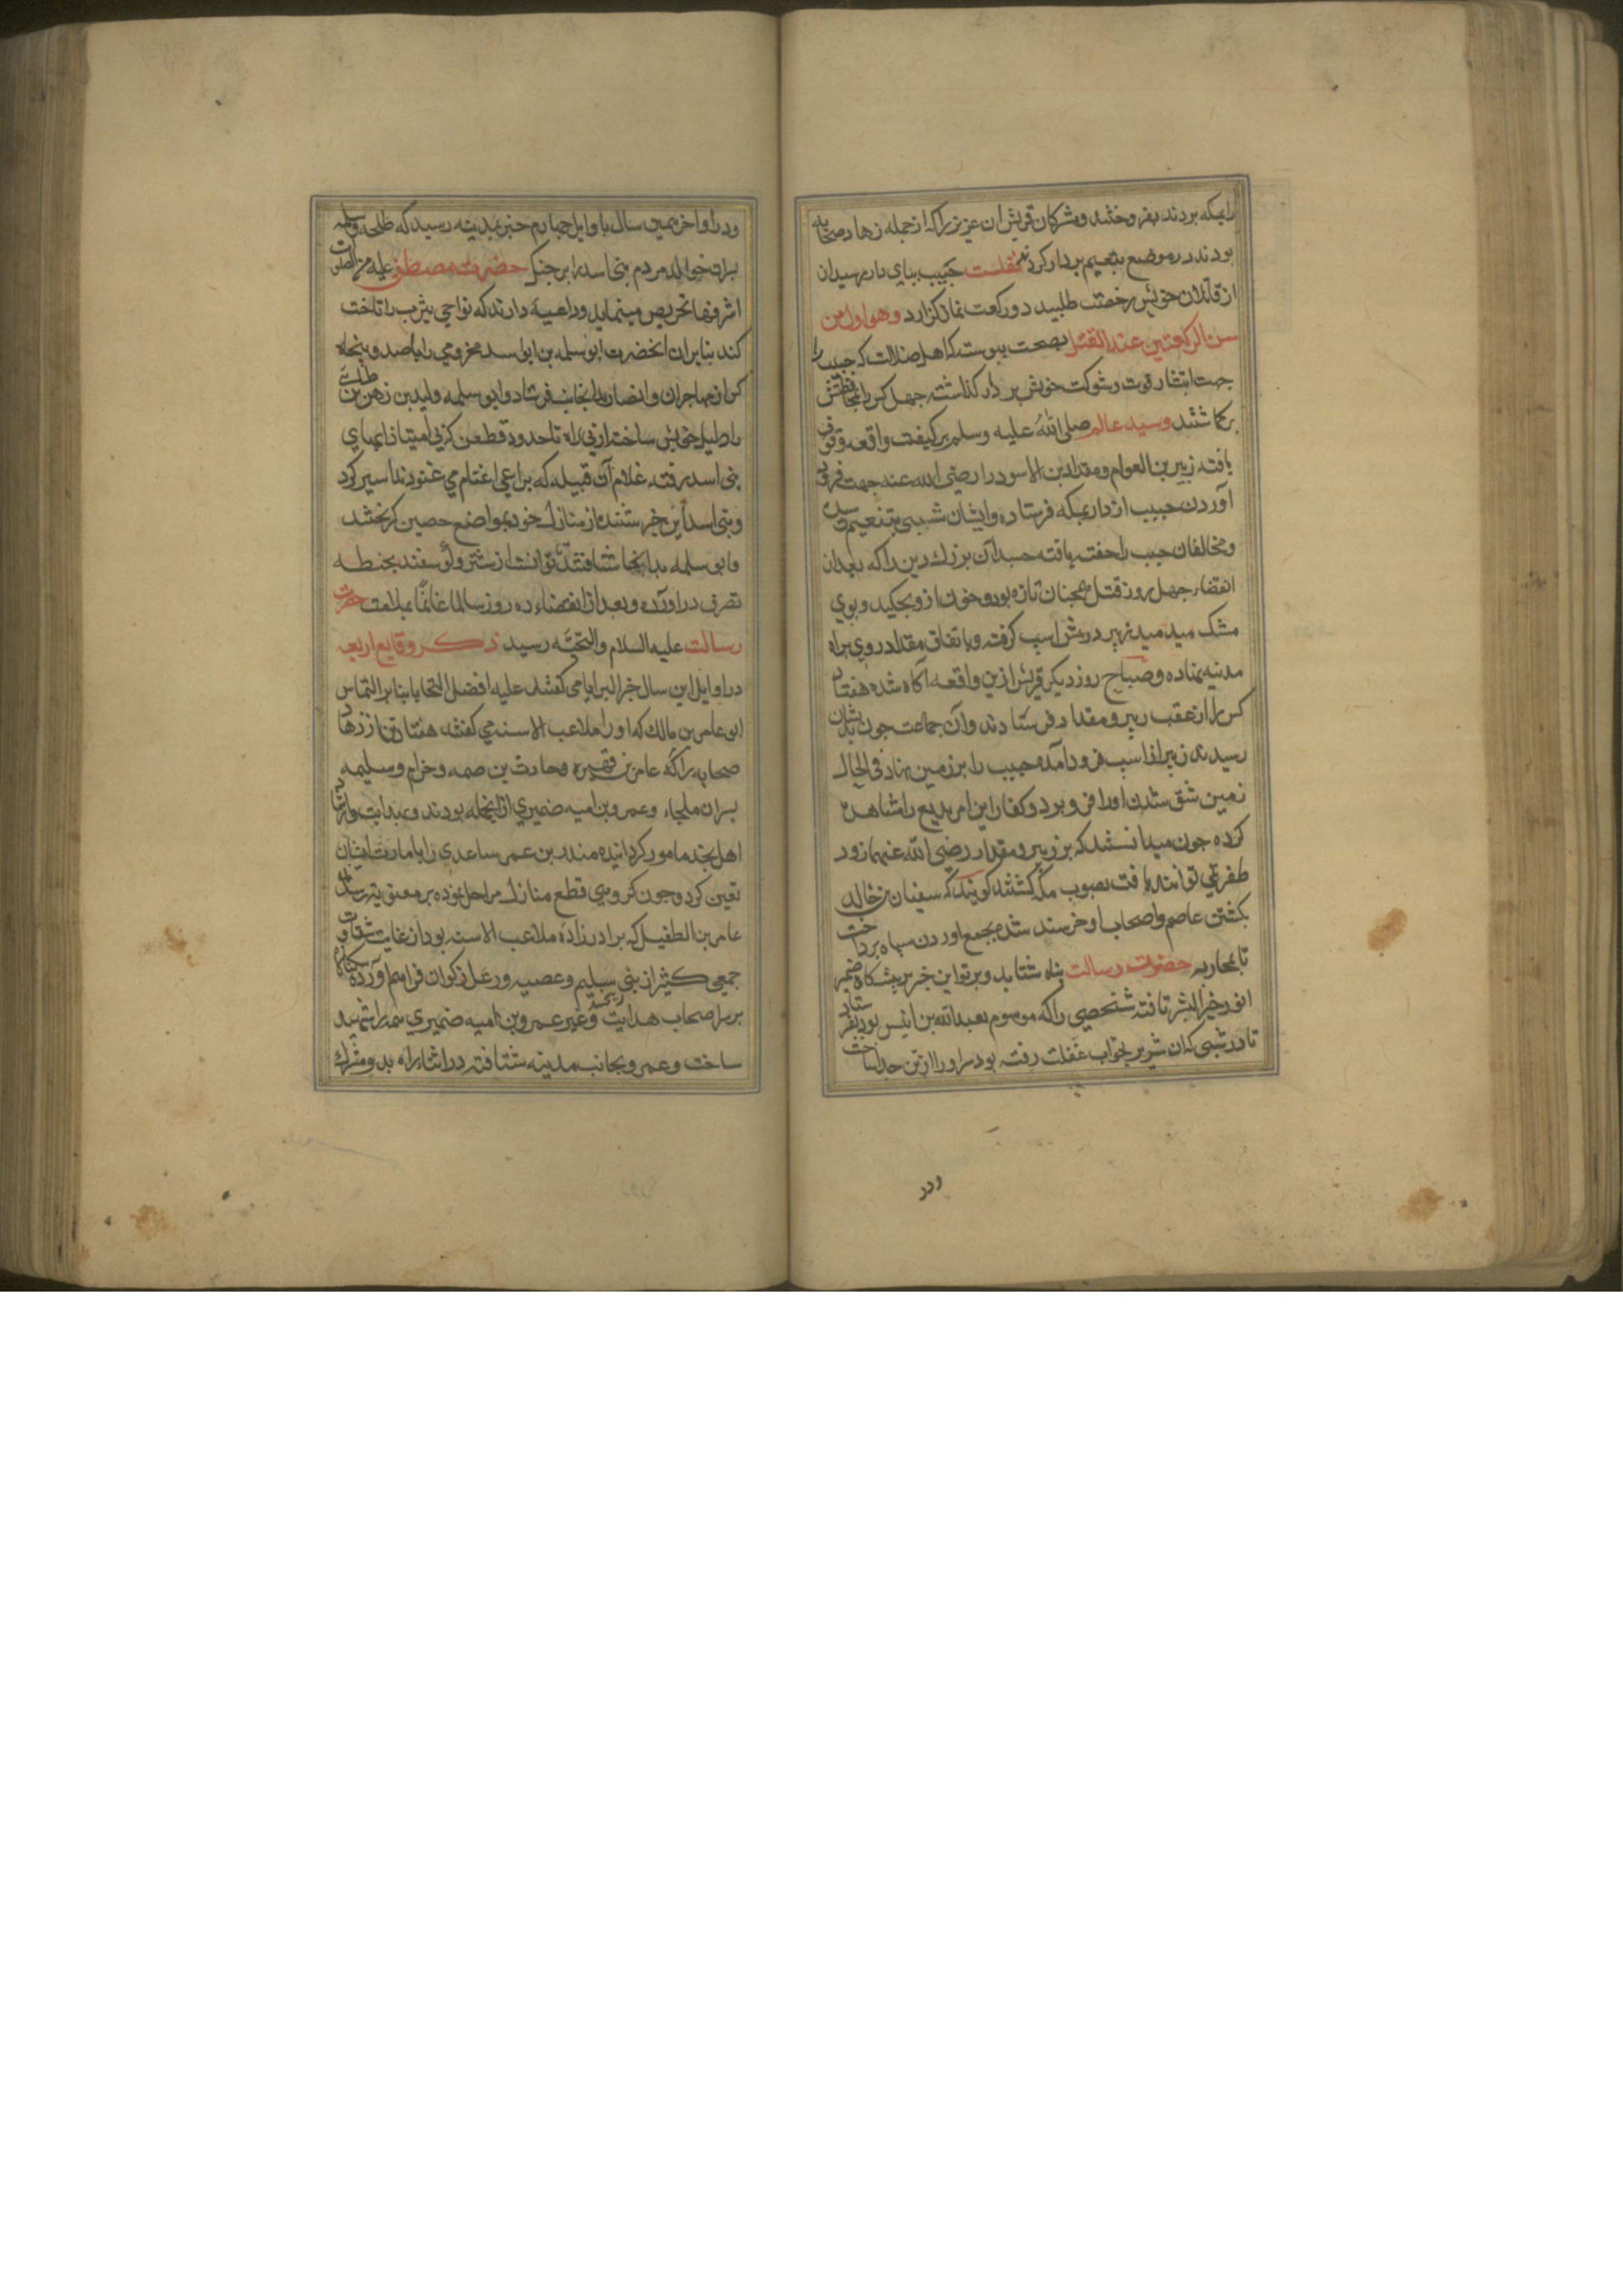 رابمکه بردند بفروختند ومشرکان قریش ان عزیز را که از جمله زهاد صحابه
بودند در موضع تنعیم بردار کردند نقلست خبیب بپای دار رسیدان
از قاتلان خویش رخصت طلبید دو رکعت نماز گزارد وهو اول من
سن الرکعتین عند القتل بصحت پیوسته که اهل ضلالت که خبیب را
جهت انتشار قوت وشوکت خویش بر دار گذاشته چهل کس را بمحافظتش
برگماشتند وسید عالم صلی الله علیه وسلم بر کیفیت واقعه وقوف
یافته زبیر بن العوام ومقداد بن الاسود را رضی الله عنه جهت فرود
آوردن خبیب از دار بمکه فرستاده وایشان شبی بتنعیم رسیده
ومخالفان خبیب را خفته یافته جسد آن بزرك دین را که بعد از
انقضاء چهل روز قتل همچنان تازه بود وخون از و میچکید وبوی
مشک میدمید زبیر در پیش اسب گرفته وباتفاق مقداد روی براه
مدینه نهاده وصباح روز دیگر قریش ازین واقعه آگاه شده هفتاد
کس را از عقب زبیر ومقداد فرستادند وآن جماعت چون بدیشان
رسیدند زبیر از اسب فرود آمده خبیب را بر زمین نهاد فی الحال
زمین شق شده اورا فرو برد وکفار این امر بدیع را مشاهده
کرده چون میدانستند که بر زبیر ومقداد رضی الله عنهما زود
ظفر نمی توانند یافت بصوب مکه گشتند گویند که سفیان بن خالد
بکشتن عاصم واصحاب او خرسند شده بجمع اوردن سپاه پرداخت
تا بمحاربه حضرت رسالت پناه شتابد وپرتو این خبر بر پیشگاه ضمیر
انور خیر البشر تافته شخصی را که موسوم بعبد الله بن انیس بود بفرستاد
تا در شبی که ان شریر بخواب غفلت رفته بود سر اورا از تن جدا ساخت
ودر
ودر اواخر همین سال یا اوایل چهارم خبر بمدینه رسید که طلحه وسلمه
پسران خوالد مردم بنی اسد را بر جنگ حضرت مصطفی علیه من الصلوات
اشرفها تحریص مینماید وداعیه دارند که نواحی یثرب را تاخت
کند بنابران انحضرت ابو سلمه بن ابو اسد مخزومی را با صد وپنجاه
کس از مهاجران وانصار بدانجانب فرستاد وابو سلمه ولید بن زهیر بن طلبی
را دلیل خویش ساخته از بی راه تا حدود قطعن که یی است از ابهای
بنی اسد رفته غلام آن قبیله که براعی اغنام می غنودند اسیر کرد
وبنی اسد این خبر شنیده از منازل خود بمواضع حصین گریختند
وابو سلمه بدانجا شتافته آنچه توانست از شتر وگوسفند بحیطه
تصرف در اورده وبعد از انقضاء ده روز سالما غانما بملازمت حضرت
رسالت علیه السلام والتحیّه رسید ذکر وقایع اربعه
در اوایل این سال خیر البرایا می گفتند علیه افضل التحایا بنابر التماس
ابو عامر بن مالك که اورا ملاعب الاسنه می گفتند هفتاد تن از زهاد
صحابه را که عامر بن فهیره وحارث بن صمه وحزام وسلیمه
پسران ملجاء وعمرو بن امیه ضمیری از انجمله بودند وعبدایت وارشاد
اهل نجد مامور گردانیده منذر بن عمر ساعدی را بامارت ایشان
تعین کرد وچون گروهی قطع منازل ومراحل نموده بر معونه رسیدند
عامر بن الطفیل که برادر زاده ملاعب الاسنه بود از غایت شقاوت
جمعی کثیر از بنی سلیم وعصیه ورعل وذکوان فراهم آورده ناگاه
بر سر اصحاب هدایت ریخته وغیر عمرو بن امیه ضمیری همه را شهید
ساخت وعمرو بجانب مدینه شتافته در اثناء راه بدو مشرك